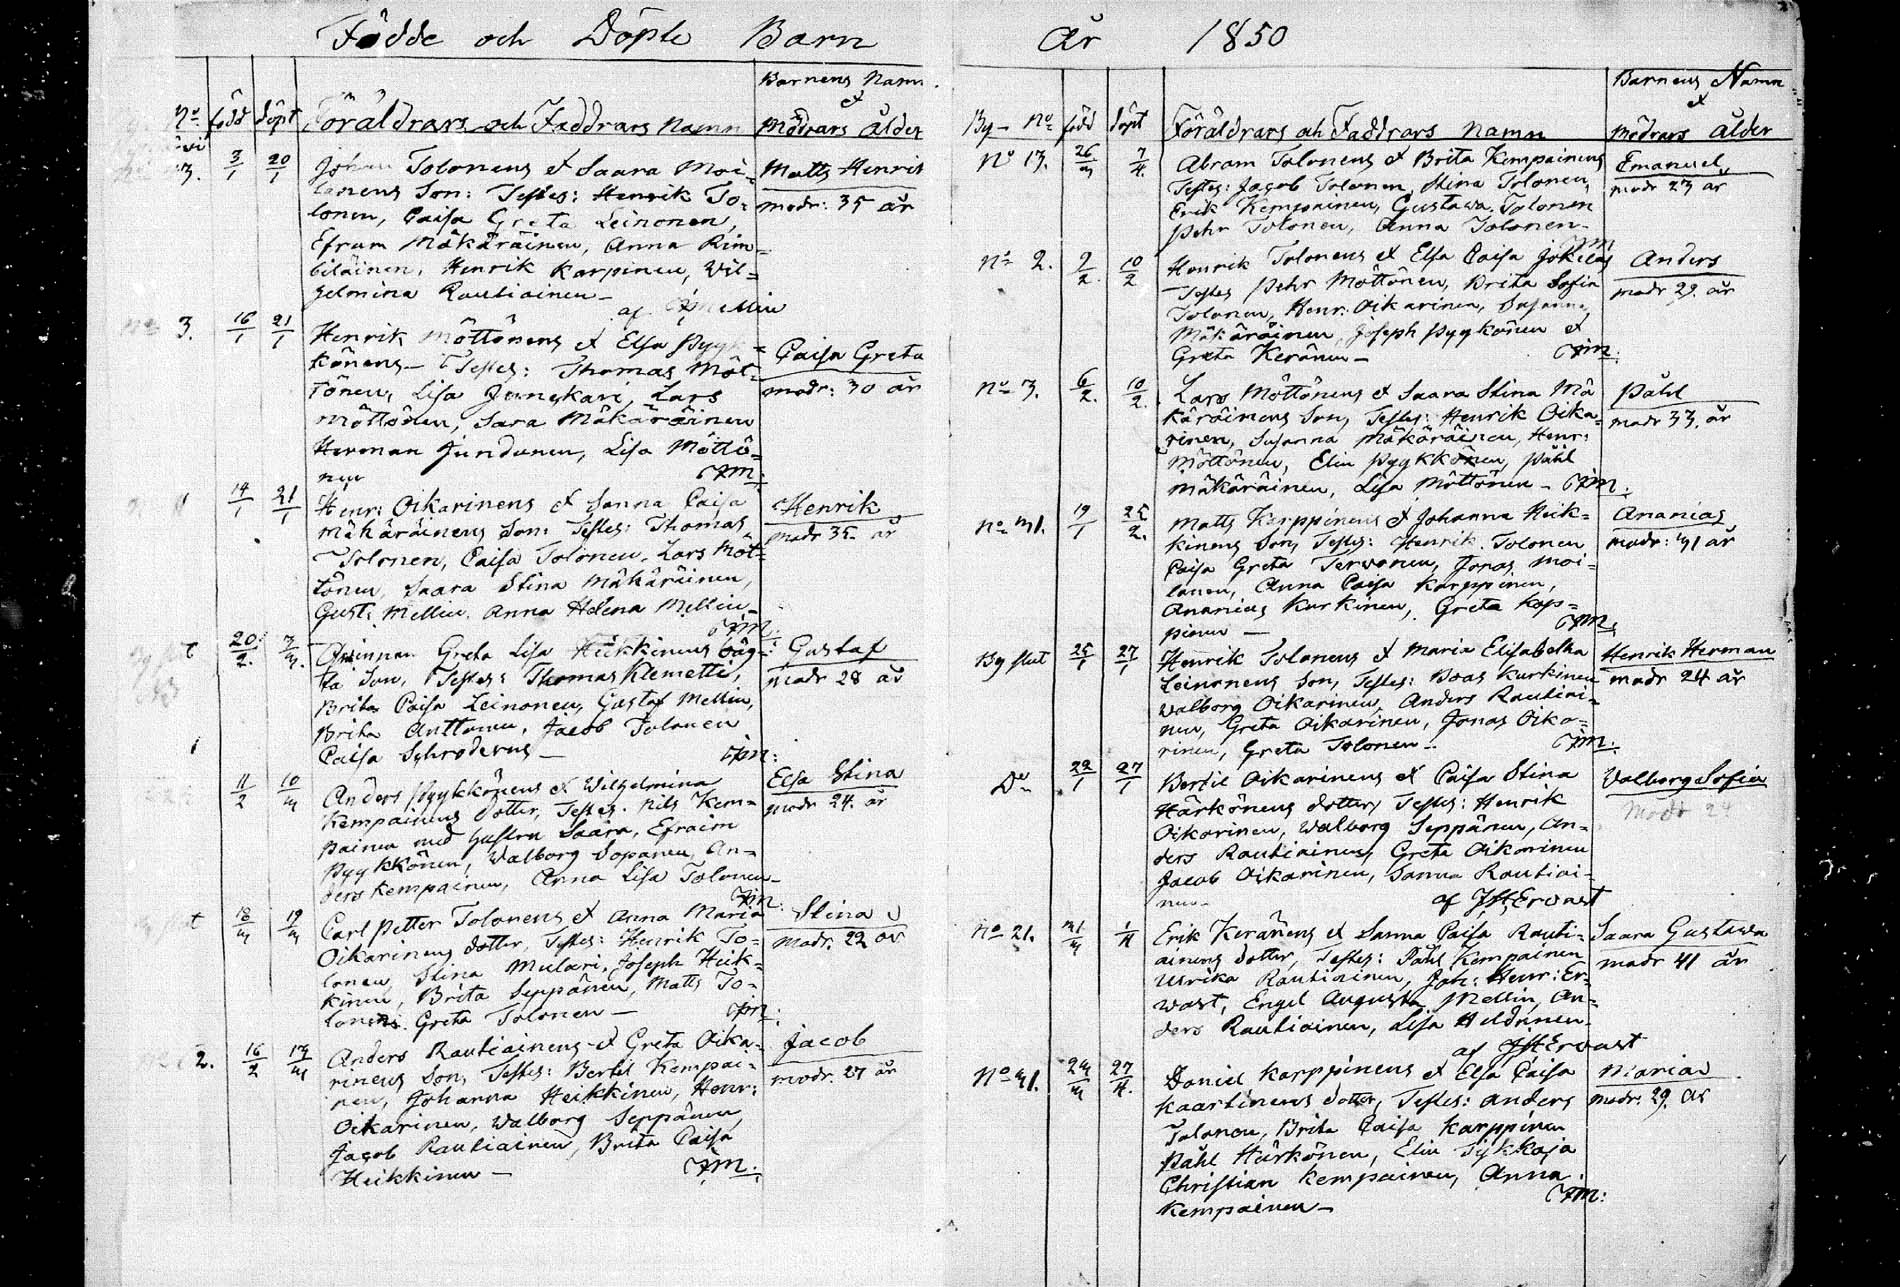 Födde och Döpte Barn
År 1850
Barnens Namn
et
No född döpt Föräldrars och Faddrars Namn Mödrars Ålder
3. 3/1 20/1 Johan Tolonens et Saara Moi-
lanens Son: Testes: Henrik To-
lonen, Caisa Greta Leinonen,
Efram Mäkäräinen, Anna Rim-
biläinen, Henrik Karpinen, Wil-
helmina Rautiainen –
af Mellin
Matts Henrik
modr: 35 år
No 3. 16/1 21/1 Henrik Möttönens et Elsa Pyyk-
könens – Testes: Thomas Möt-
tönen, Lisa Jungkari, Lars
Möttönen, Sara Mäkäräinen
Herman Jundunen, Lisa Möttö-
nen
Caisa Greta
modr: 30 år
14/1 21/1 Henr: Oikarinens et Sanna Caisa
Mäkäräinens Son: Testes: Thomas
Tolonen, Caisa Tolonen, Lars Möt-
tönen, Saara Stina Mäkäräinen,
Gust: Mellin, Anna Helena Mellin –
Henrik
modr 35 år
20/2. Qwinnan Greta Lisa Heikkinens oäg-
ta Son, Testes: Thomas Klemetti,
Brita Caisa Leinonen, Gustaf Mellin,
Brita Anttonen, Jacob Tolonen
Caisa Schroderus –
Gustaf
modr 28 år
11/2 Anders Pyykkönens et Wilhelmina
Kempainens dotter, Testes: Nils Kem-
painen med hustru Saara, Efraim
Pyykkönen, Walborg Sopanen, An-
ders Kempainen, Anna Lisa Tolonen –
Elsa Stina
modr 24. år
Carl Petter Tolonens et Anna Maria
Oikarinens dotter, Testes: Henrik To-
lonen, Stina Mulari, Joseph Heik-
kinen, Brita Seppänen, Matts To-
lonens Greta Tolonen –
Stina
modr. 22 år
2. 16/2 Anders Rautiainens et Greta Oika-
rinens Son, Testes: Bertil Kempai-
nen, Johanna Heikkinen, Henr:
Oikarinen, Walborg Seppänen,
Jacob Rautiainen, Brita Caisa
Heikkinen –
Jacob
modr. 27 år
Barnens Namn
et
By – No född döpt Föräldrars och Faddrars Namn Mödrars Ålder
No 13. Abram Tolonens et Brita Kempainens
Testes: Jacob Tolonen, Stina Tolonen,
Erik Kempainen, Gustava Tolonen
Pehr Tolonen, Anna Tolonen –
Emanuel
modr 23 år
No 2. 9/2. 10/2 Henrik Tolonens et Elsa Caisa Jokelas
Testes Pehr Möttönen, Brita Sofia
Tolonen, Henr: Oikarinen, Susanna
Mäkäräinen, Joseph Pyykönen et
Greta Keränen –
Anders
modr 29. år
No 3. 6/2. 10/2. Lars Möttönens et Saara Stina Mä
käräinens Son, Testes: Henrik Oika-
rinen, Susanna Mäkäräinen, Henr:
Möttönen, Elin Pyykkönen, Påhl
Mäkäräinen, Lisa Möttönen –
Påhl
modr 33. år
19/1 25/2. Matts Karppinens et Johanna Heik-
kinens Son, Testes: Henrik Tolonen
Caisa Greta Terwonen, Jonas Moi-
lanen, Anna Caisa Karppinen,
Ananias Kurkinen, Greta Kap-
pinen –
Ananias
By slut 25/1 27/1 Henrik Tolonens et Maria Elisabetha
Leinonens Son, Testes: Boas Kurkinen
Walborg Oikarinen, Anders Rautiai-
nen, Greta Oikarinen, Jonas Oika-
rinen, Greta Tolonen –
Henrik Herman
modr 24 år
Do 22/1 27/1 Bertil Oikarinens et Caisa Stina
Härkönens dotter, Testes: Henrik
Oikarinen, Walborg Seppänen, An-
ders Rautiainen, Greta Oikarinen
Jacob Oikarinen, Sanna Rautiai-
nen –
af JH Ervast
Valborg Sofia
Modr 24
No 21. Erik Keränens et Sanna Caisa Rauti-
ainens dotter, Testes: Påhl Kempainen
Ulrika Rautiainen, Joh: Henr: Er-
wast, Engel Augusta Mellin, An-
ders Rautiainen, Lisa Heldinen –
af JH Ervast
Saara Gustava
modr 41 år
Daniel Karppinens et Elsa Caisa
Kaartinens dotter, Testes: Anders
Tolonen, Brita Caisa Karppinen
Påhl Härkönen, Elin Tykkaja
Christian Kempainen, Anna
Kempainen –
Maria
modr: 29. år